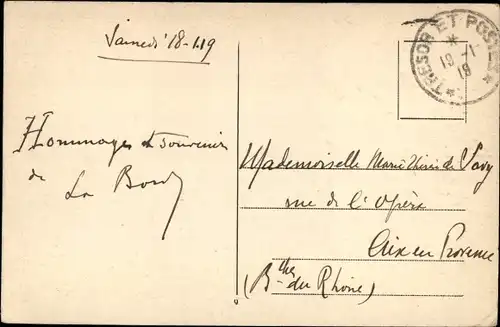 Samedi 18-1.19
TRESOR ET POSTES
19 -1
19
Hommages et souvenir
de
La Bord
Mademoiselle Marie Thérèse de Savy
rue de l'Opéra
Aix en Provence
(Bches du Rhône)